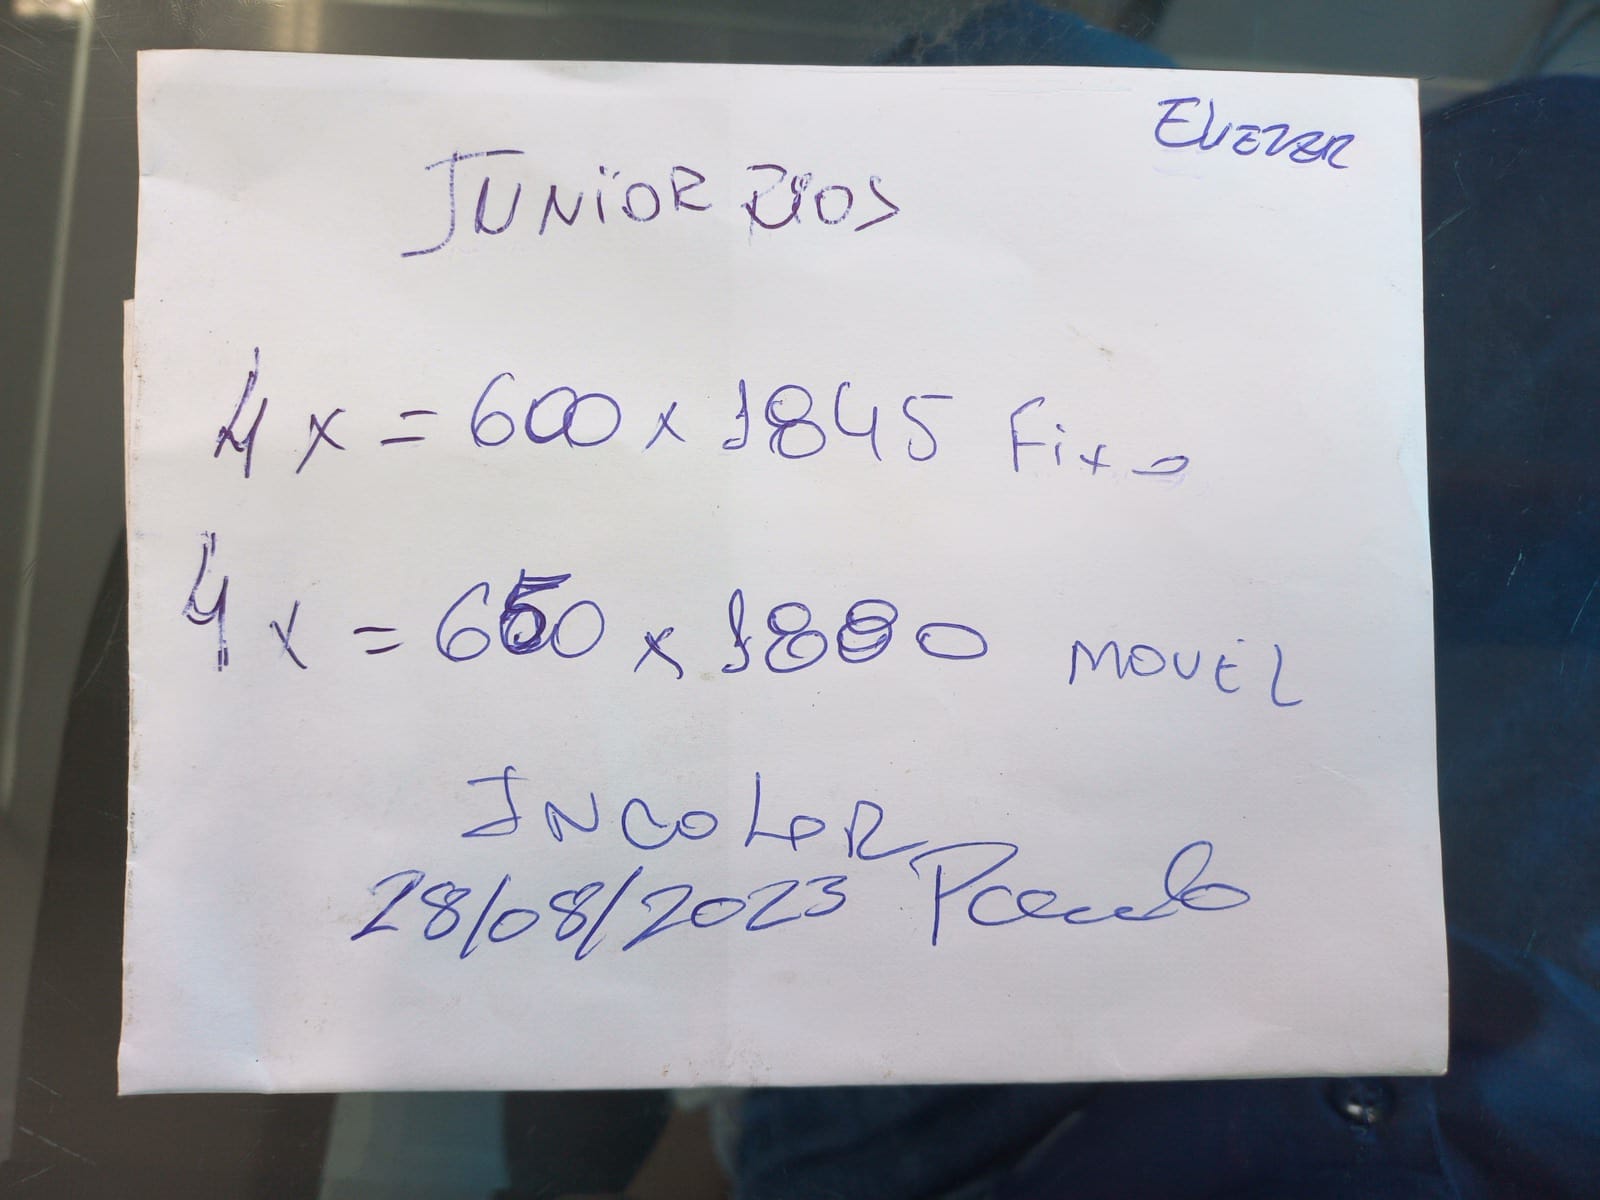 ELIEZER
JUNIOR RIOS
4 x = 600 x 1845 Fixo
4 x = 650 x 1880 MOVEL
INCOLOR
28/08/2023 Paulo